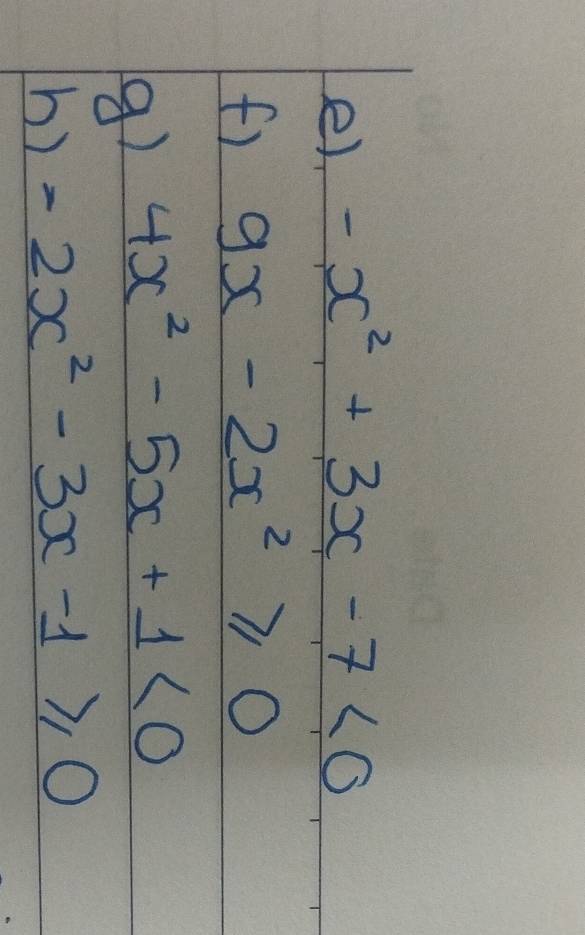 e) - x² + 3x - 7 < 0
f) 9x - 2x² ⩾ 0
g) 4x² - 5x + 1 < 0
h) - 2x² - 3x - 1 ⩾ 0